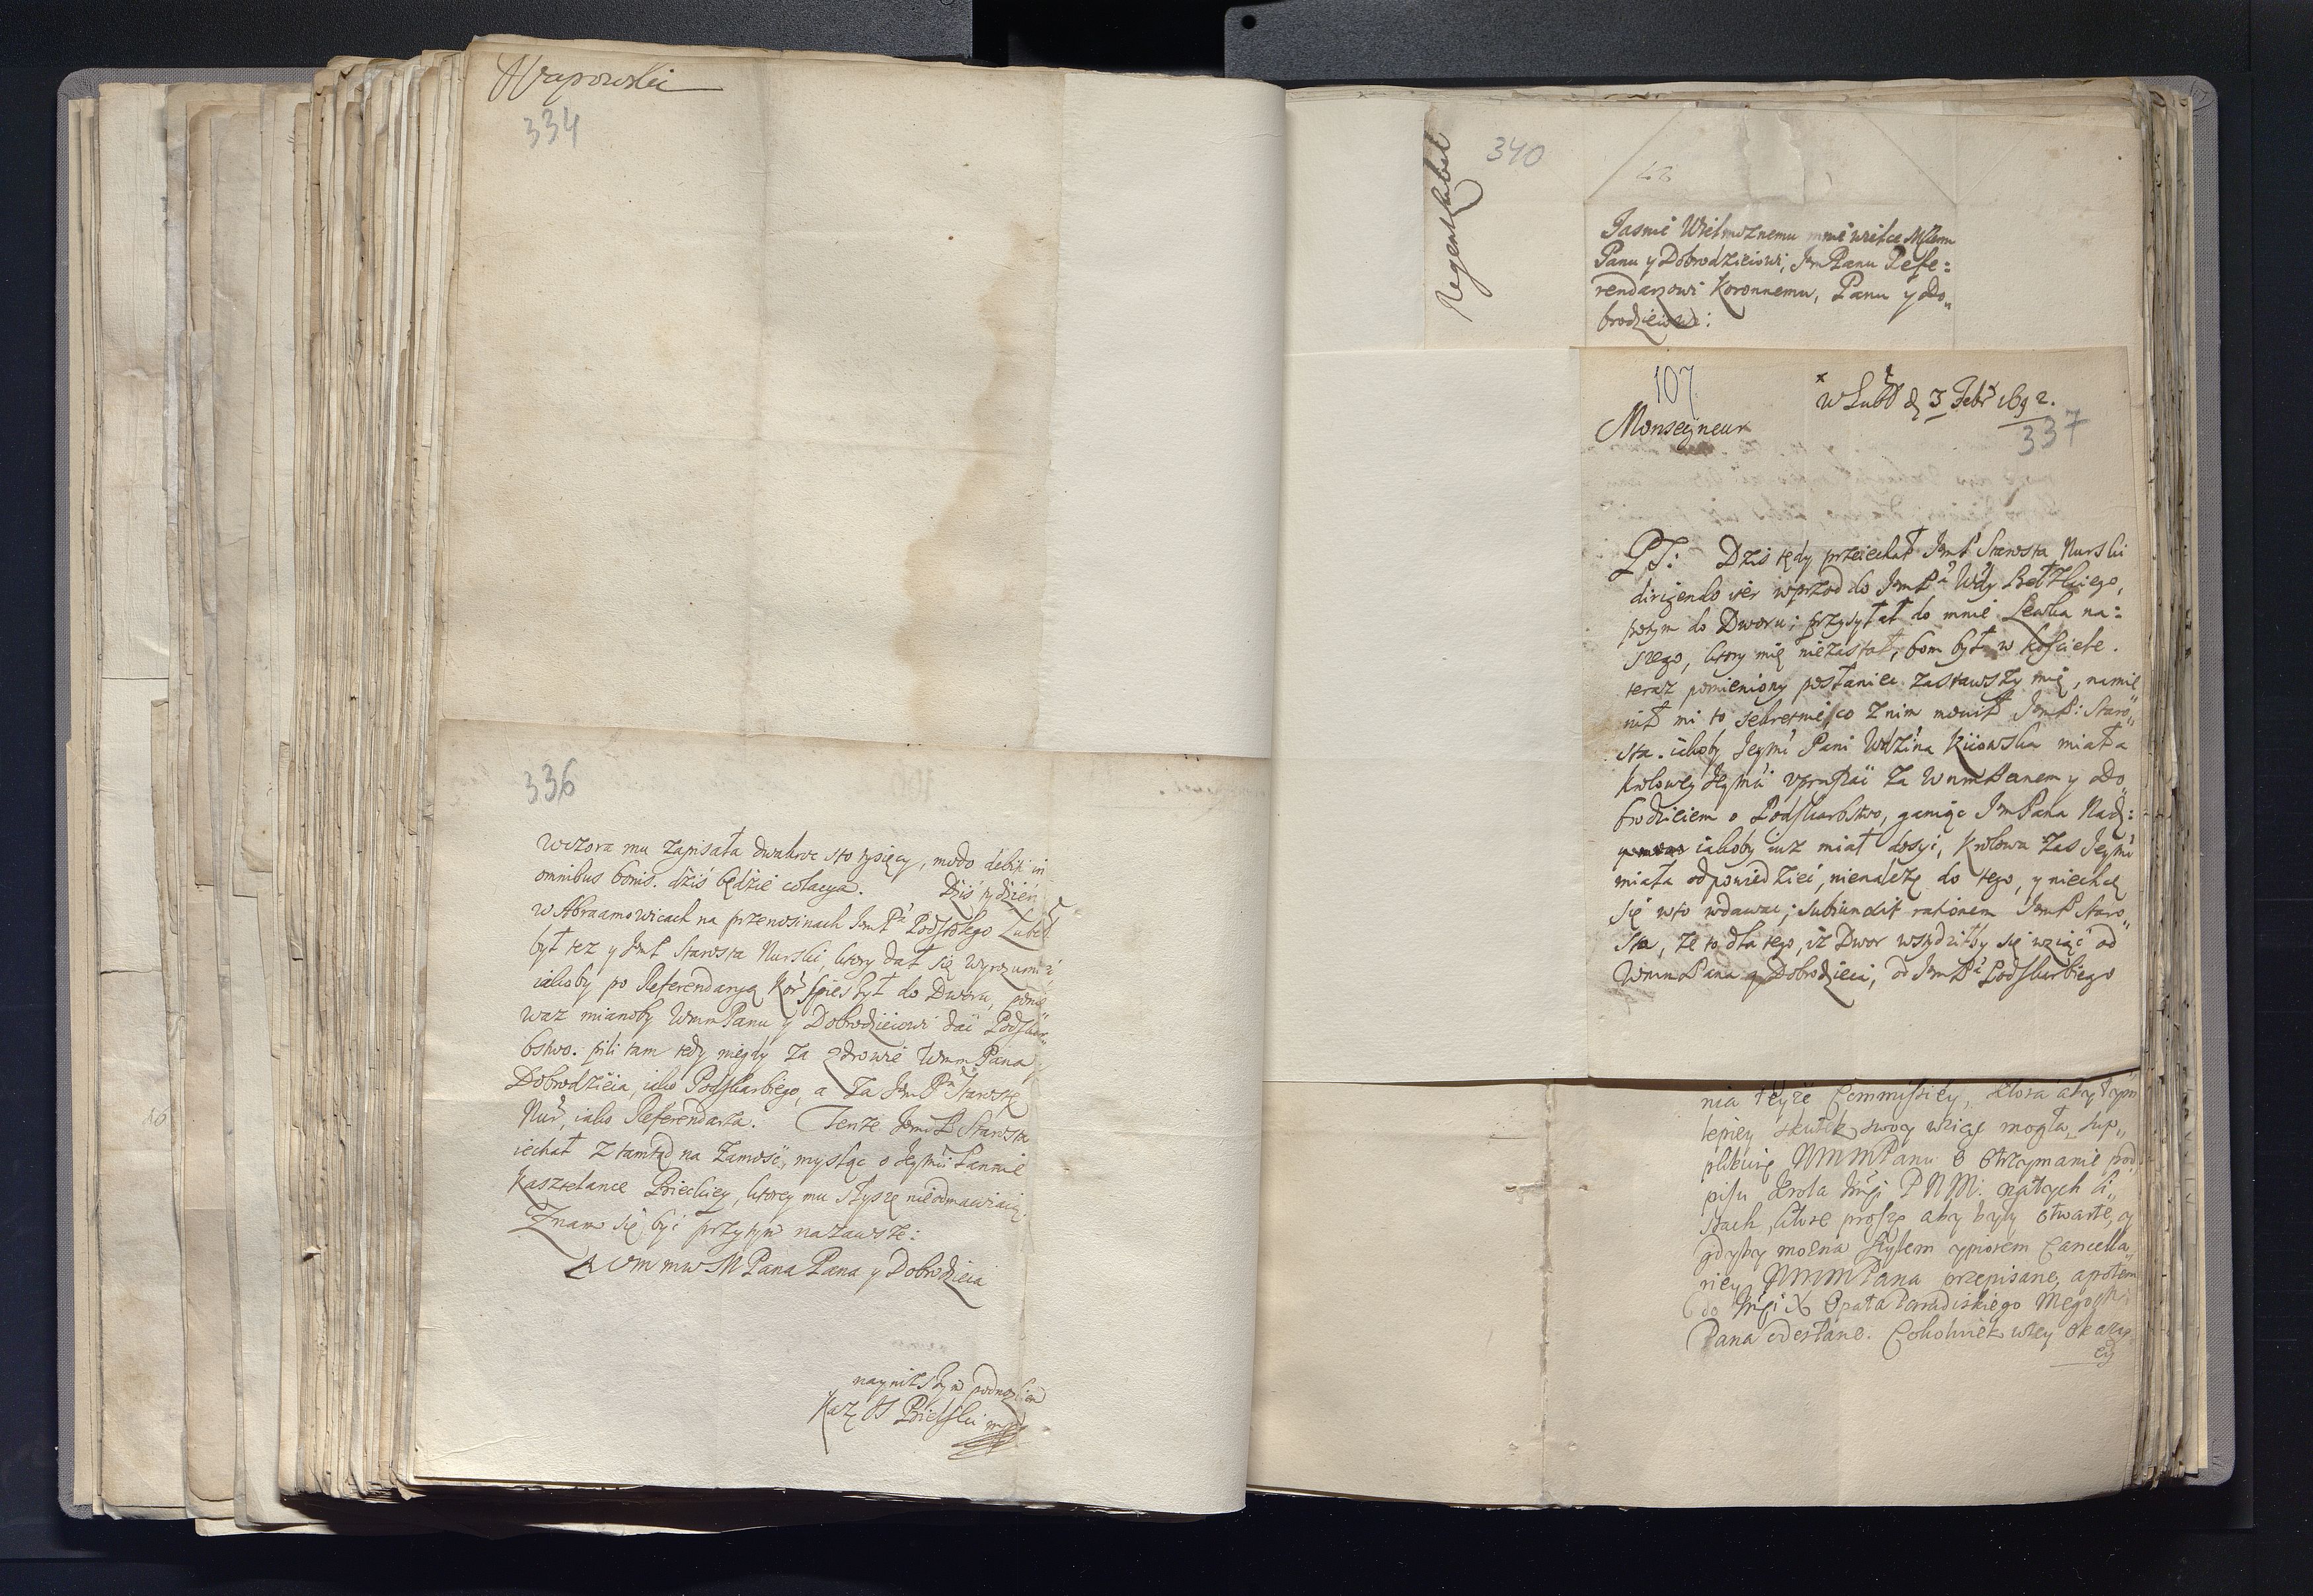 Wapowski
334
336
wczora mu zapisała dwakroc sto tysięcy, modo debiti in
omnibus bonis. dziś będzie colacya. Dziś tydzień
w Abraamowicach na przenosinach JemPa Podstolego Lubel
był tez y JemP Starosta Nurski, ktory dał się wyrozumieć
iakoby po Referendaryą Kor spieszył do Dworu, ponie„
waz mianoby WmmPanu y Dobrodzieiowi dać Podskar„
bstwo. pili tam tedy niegdy za zdrowie WmmPana
Dobrodzieia, iako Podskarbiego, a za JemPa Starostę
Nur, iako Referendarza. Tenze JemP Starosta
iechał z tamtąd na Zamość, mysląc o Jeymci Pannie
Kasztelance Bieckiey, ktorey mu słyszę nieodmawiaią.
Znam się być przytym nazawsze:
WmmwMPana Pana y Dobrodzieia
naynizszym podnozkiem
Kaz Bielski mp
Regent Lubel
340
Jasnie Wielmoznemu mnie wielce Młemu
Panu y Dobrodzieiowi, JemPanu Refe:
rendarzowi Koronnemu, Panu y Do„
brodzieiowi:
107.
w Lubl d 3 Febr 1692.
Monseyneur
337
PS: Dzis tędy przeiechał JemP Starosta Nurski
dirigendo iter wprzod do JemPa Wdy Bełzkiego,
potym do Dworu; przysyłał do mnie Lewka na:
szego, ktory mię niezastał, bom był w kosciele.
teraz pomieniony posłaniec zastawszy mię, namie„
nił mi to sekretnie, co z nim mowił JemP: Staro„
sta. iakoby Jeymć Pani Wdzina Kiiowska miała
Krolowey Jeymci upraszać za WmmPanem y Do„
brodzieiem o Podskarbstwo, ganiąc JemPana Nad:
iakoby iuz miał dosyć, Krolowa zas Jeymć
miała odpowiedzieć, nienalezę do tego, y niechcę
się w to wdawac; subiunxit rationem JemP Staro„
sta, ze to dla tego, iz Dwor wstydziłby się wziąć od
WmmPana y Dobrodzieia, od JemPa Podskarbiego
nia teyze Commissiey, ktora aby tym
lepiey skutek swoy wziąć mogła, sup„
plikuię WmmPanu o otrzymanie pod„
pisu Krola Jmsci PNM: natych li„
stach, ktore proszę aby były otwarte, y
gdyby mozna stylem y piorem Cancella„
riey WmmPana przepisane, apotem
do Jmsci X Opata Paradiskiego Megoscć
Pana odesłane. Cokolwiek wtey okazy„
ey